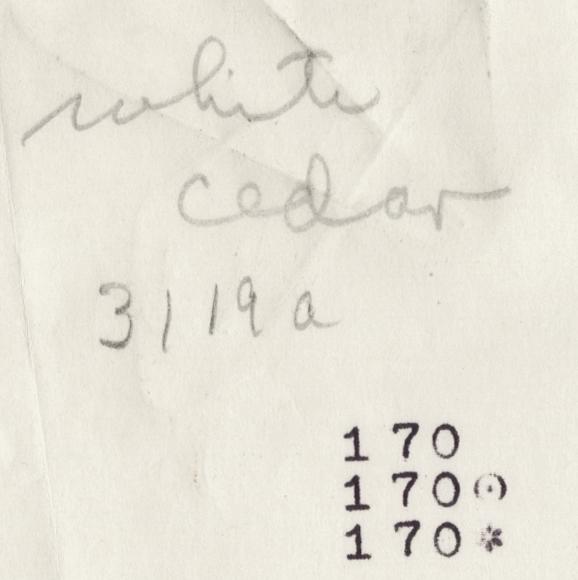 white
cedar
3119a
170
170⊙
170*